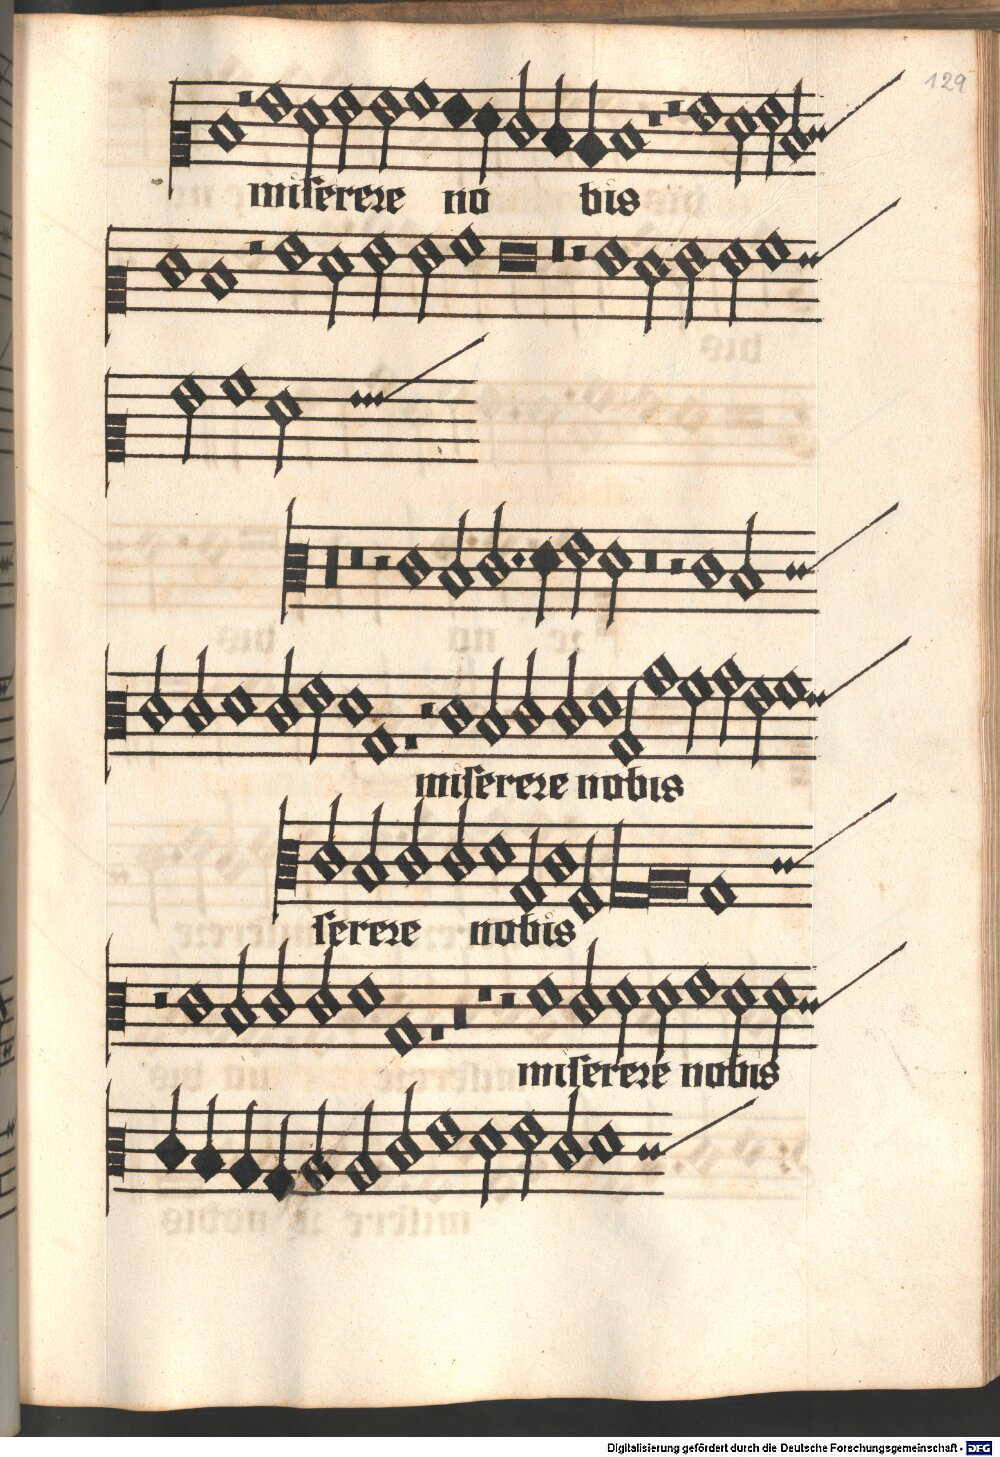 129
miserere no bis
miserere nobis
serere nobis
miserere nobis
Digitalisierung gefördert durch die Deutsche Forschungsgemeinschaft - DFG